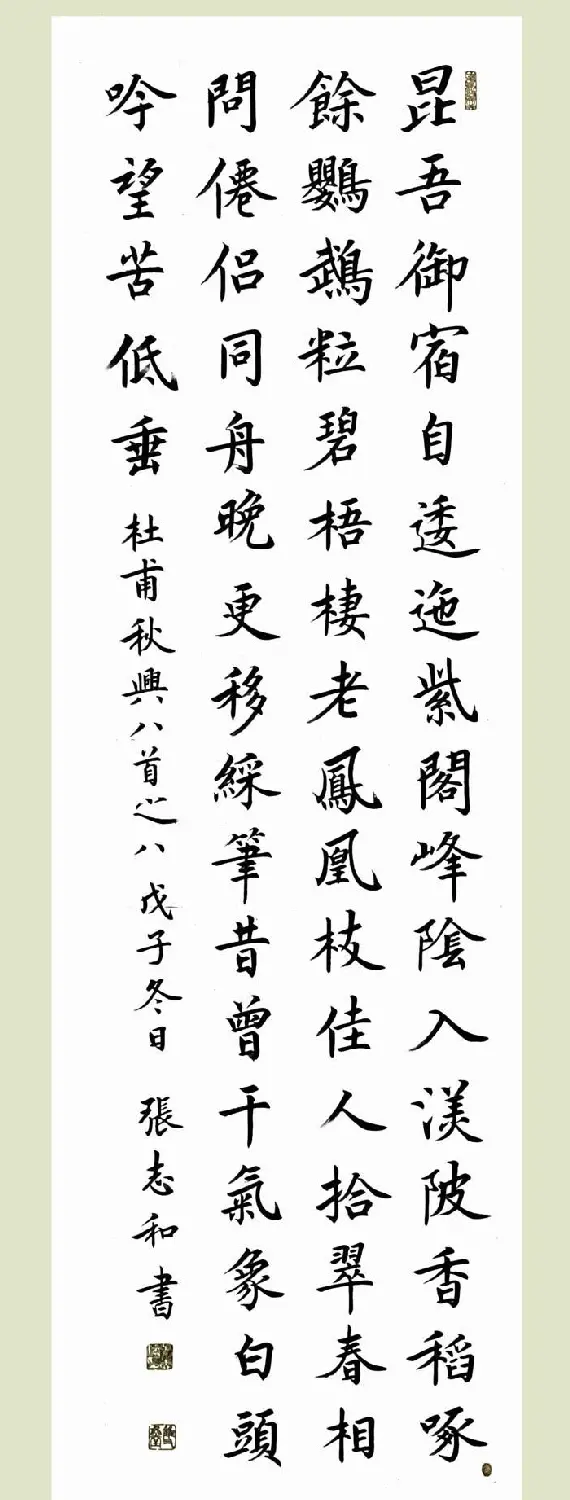 昆吾御宿自逶迤紫閣峰陰入渼陂香稻啄
餘鸚鵡粒碧梧棲老鳳凰枝佳人拾翠春相
問僊侶同舟晚更移綵筆昔曾干氣象白頭
吟望苦低垂 杜甫秋興八首之八 戊子冬日 張志和書